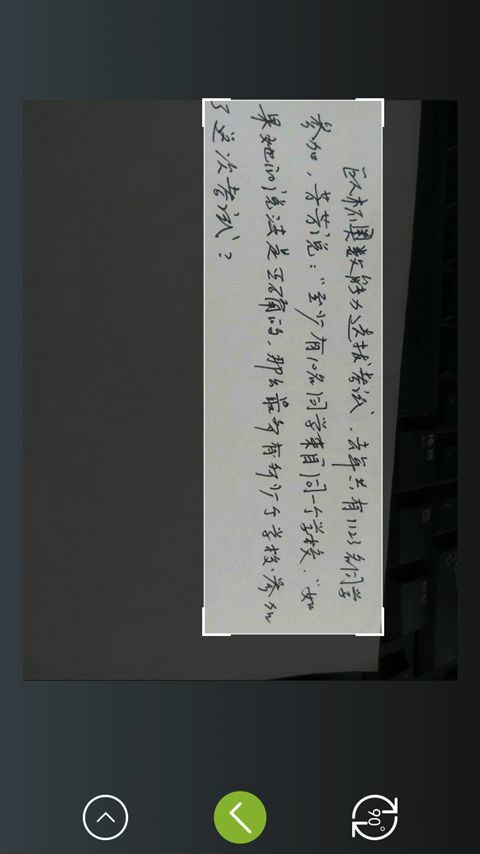 区杯奥数能力选拔考试，去年共有1123名同学
参加，芳芳说：“至少有10名同学来自同一个学校，”如
果她的说法是正确的，那么最多有多少个学校参加
了这次考试？
90°